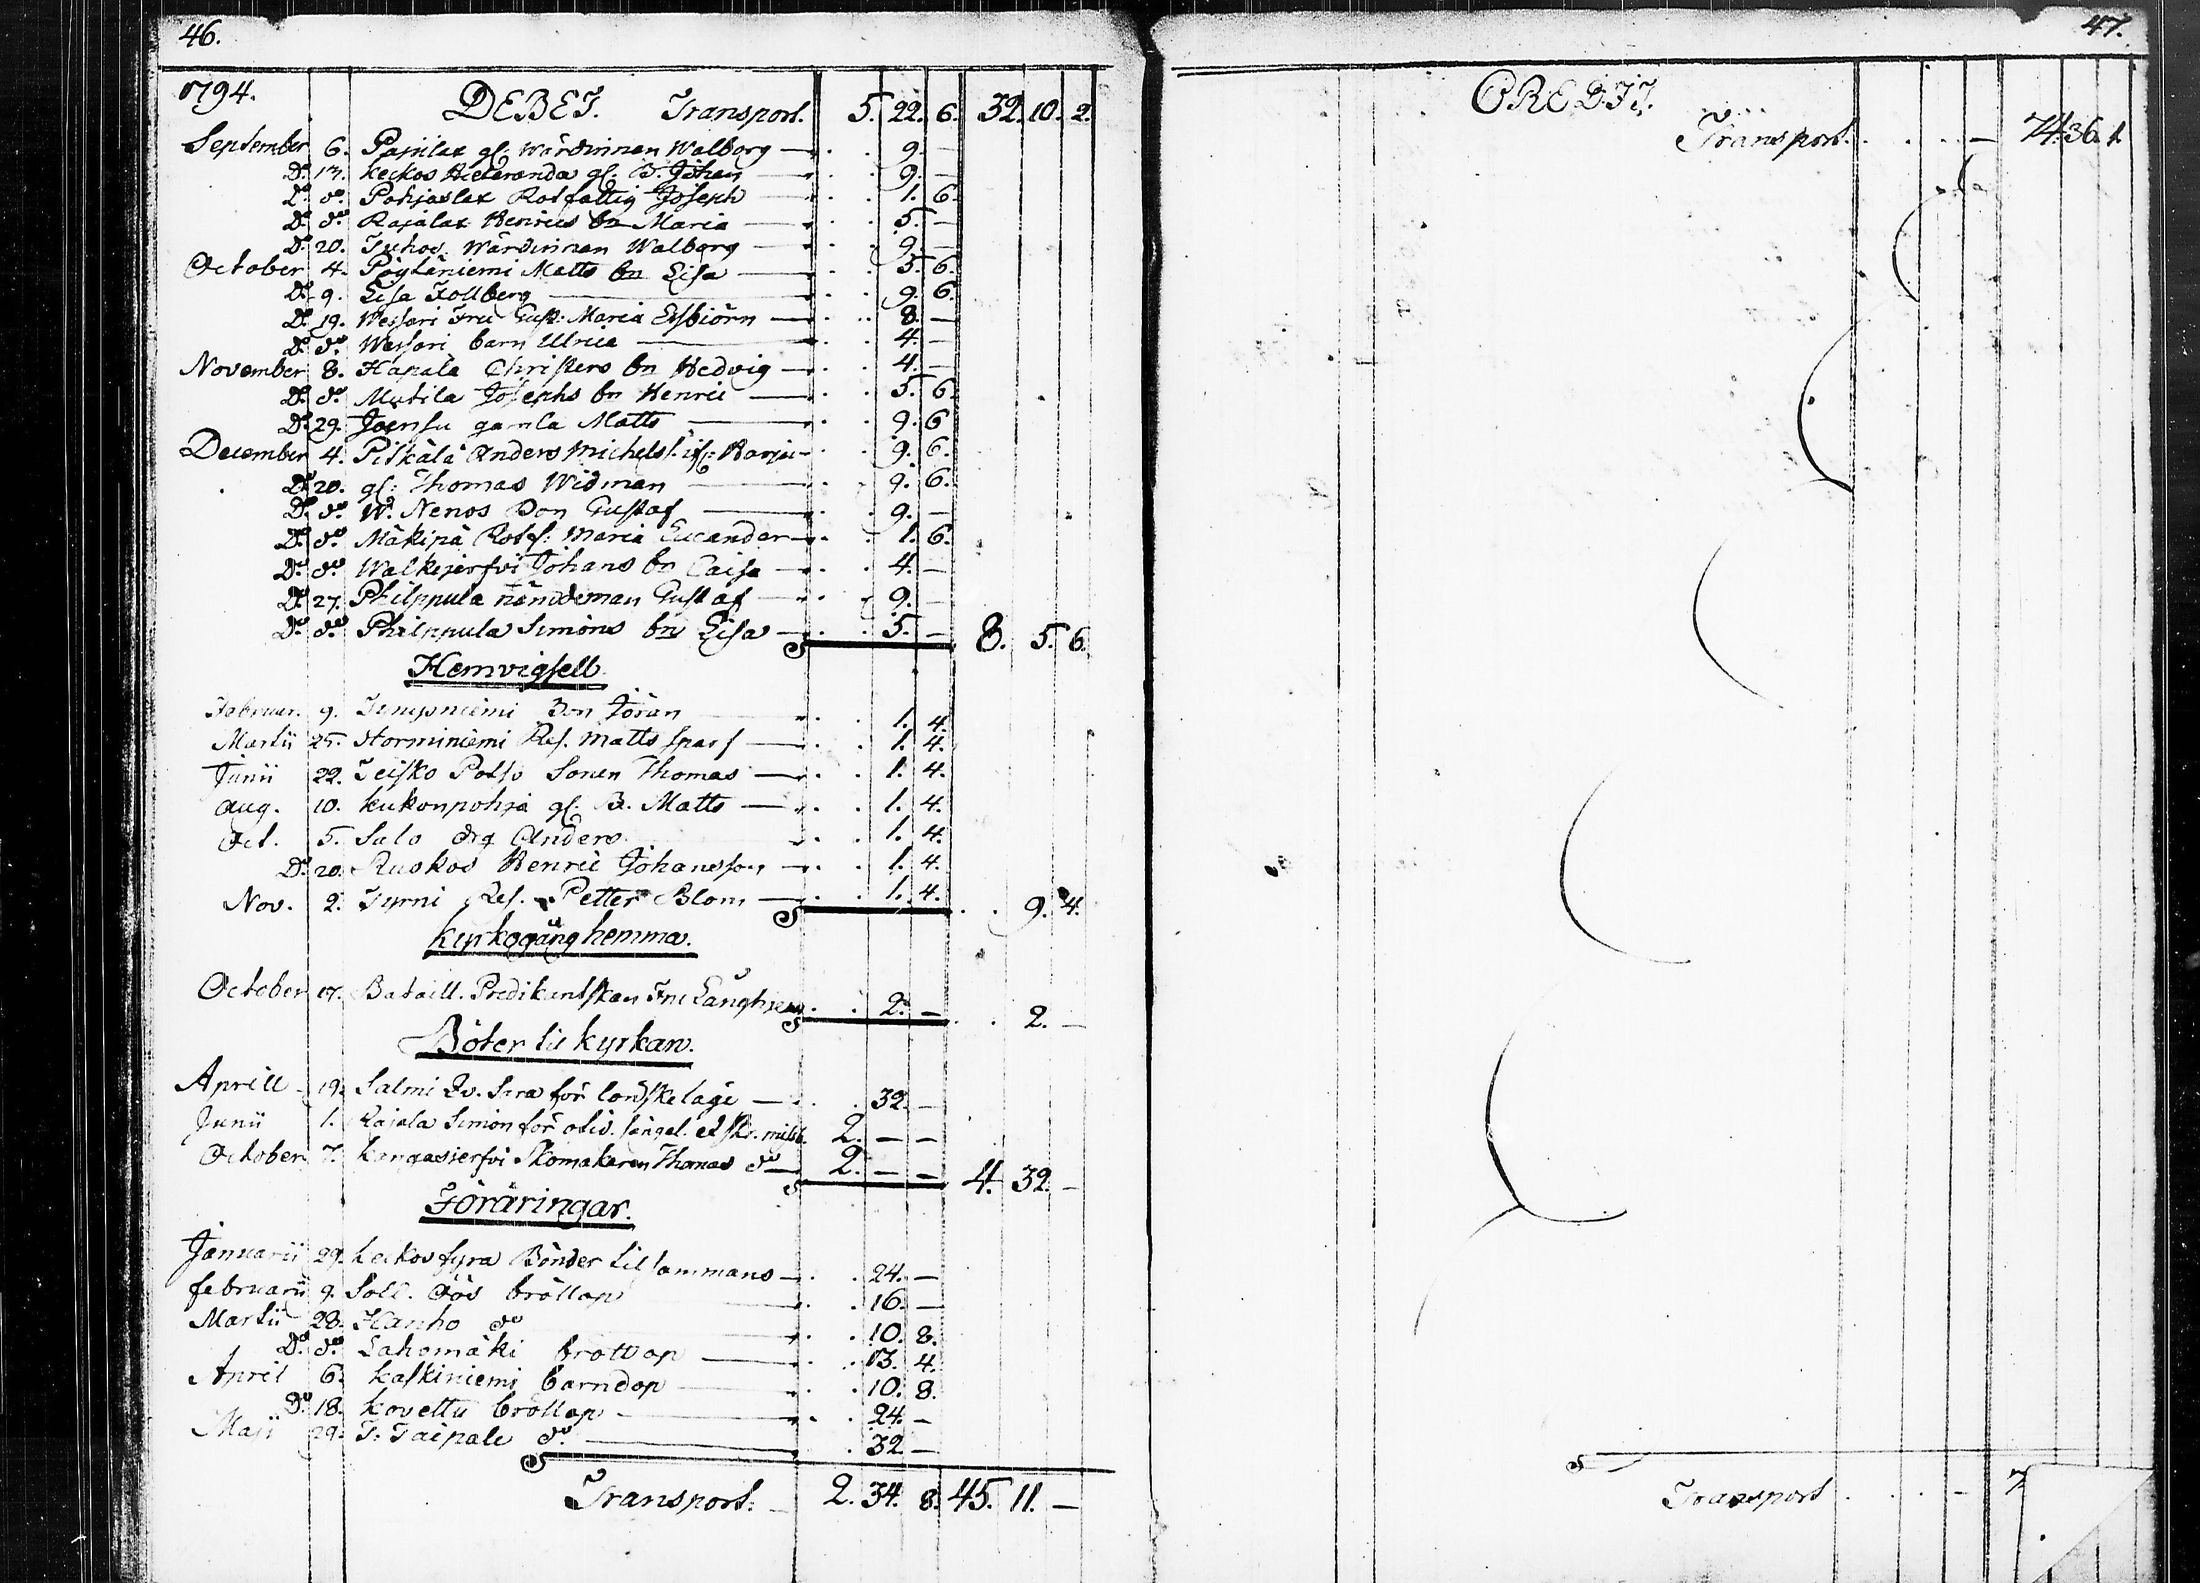 46.
1794. DEBET. Transport. 5. 22. 6. 32. 10. 2.
September 6. Pajulax gl: Wärdinnan Walborg — 9. —
Do 17. Keckos gl. B. Johan — 9. —
Do do Pohjaslax Rotfattig Joseph — 1. 6.
Do do Rajalax Henrics bn Maria — 5. —
Do 20. Juhos Wärdinnan Walborg — 9. —
October 4. Pöytäniemi Matts bn Lisa — 5. 6.
Do 9. Lisa Follberg — 9. 6.
Do 19. Wessari Fru Gust: Maria Esbiörn — 8. —
Do do Wessari barn Ulrica — 4. —
November 8. Hapala Christers bn Hedvig — 4. —
Do do Mutila Josephs bn Henric — 5. 6.
Do 29. Joensu gamla Matts — 9. 6
December 4. Piskälä Anders Michels — 9. 6.
Do 20. gl: Thomas Widman — 9. 6.
Do do W. Nenos Bon Gustaf — 9. —
Do do Mäkipä Rotf: Maria Eucander — 1. 6.
Do do Walkejerfvi Johans bn Caisa — 4. —
Do 27. Philppula nämdeman Gustaf — 9. —
Do do Philppula Simons bn Lisa — 5. — 8. 5. 6.
Hemvigsell.
Februar. 9. Bon Jöran 1. 4.
Martii 25. Storminiemi Res. Matts Sparf — 1. 4.
Junii 22. Teisko Polso Sonen Thomas — 1. 4.
Aug. 10. Kukonpohja gl. B. Matts — 1. 4.
Oct. 5. Salo drg Anders 1. 4.
Do 20. Ruskos Henric Johansson — 1. 4.
Nov. 2. Tyrni Res. Petter Blom — 1. 4. 9. 4.
Kyrkogång hemma.
October 17. Bataill. Predikantskan Fru 2. — 2. —
Böter til kyrkan.
Aprill 19. Salmi för lönskeläge — 32. —
Junii 1. Rajala Simon för 2. — —
October 7. Kangasjerfvi Skomakaren Thomas do 2. — — 4. 32. —
Föräringar.
Januarii 29. Keckos fyra Bönder tilsammans — 24. —
februarii 9. Soll. Öös bröllop 16. —
Martii 28. Hanho do 10. 8.
Do do Lahomäki bröllop — 13. 4.
April 6. Kaskiniemi barndop 10. 8.
Do 18. Kovettu bröllop — 24. —
Maji 29. T: Taipale do — 32 —
Transport. — 2. 34. 8. 45. 11. —
47.
CREDIT.
Transport. — 74. 36. 1.
Transport — 7